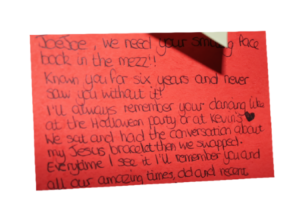 JoeJoe, we need your smiley face
back in the mezz'!
Known you for six years and never
saw you without it!
I'll always remember your dancing like
at the Halloween party or at Kevin's
We sat and had the conversation about
my Jesus bracelet then we swapped.
Everytime I see it I'll remember you and
all our amazing times, old and recent.